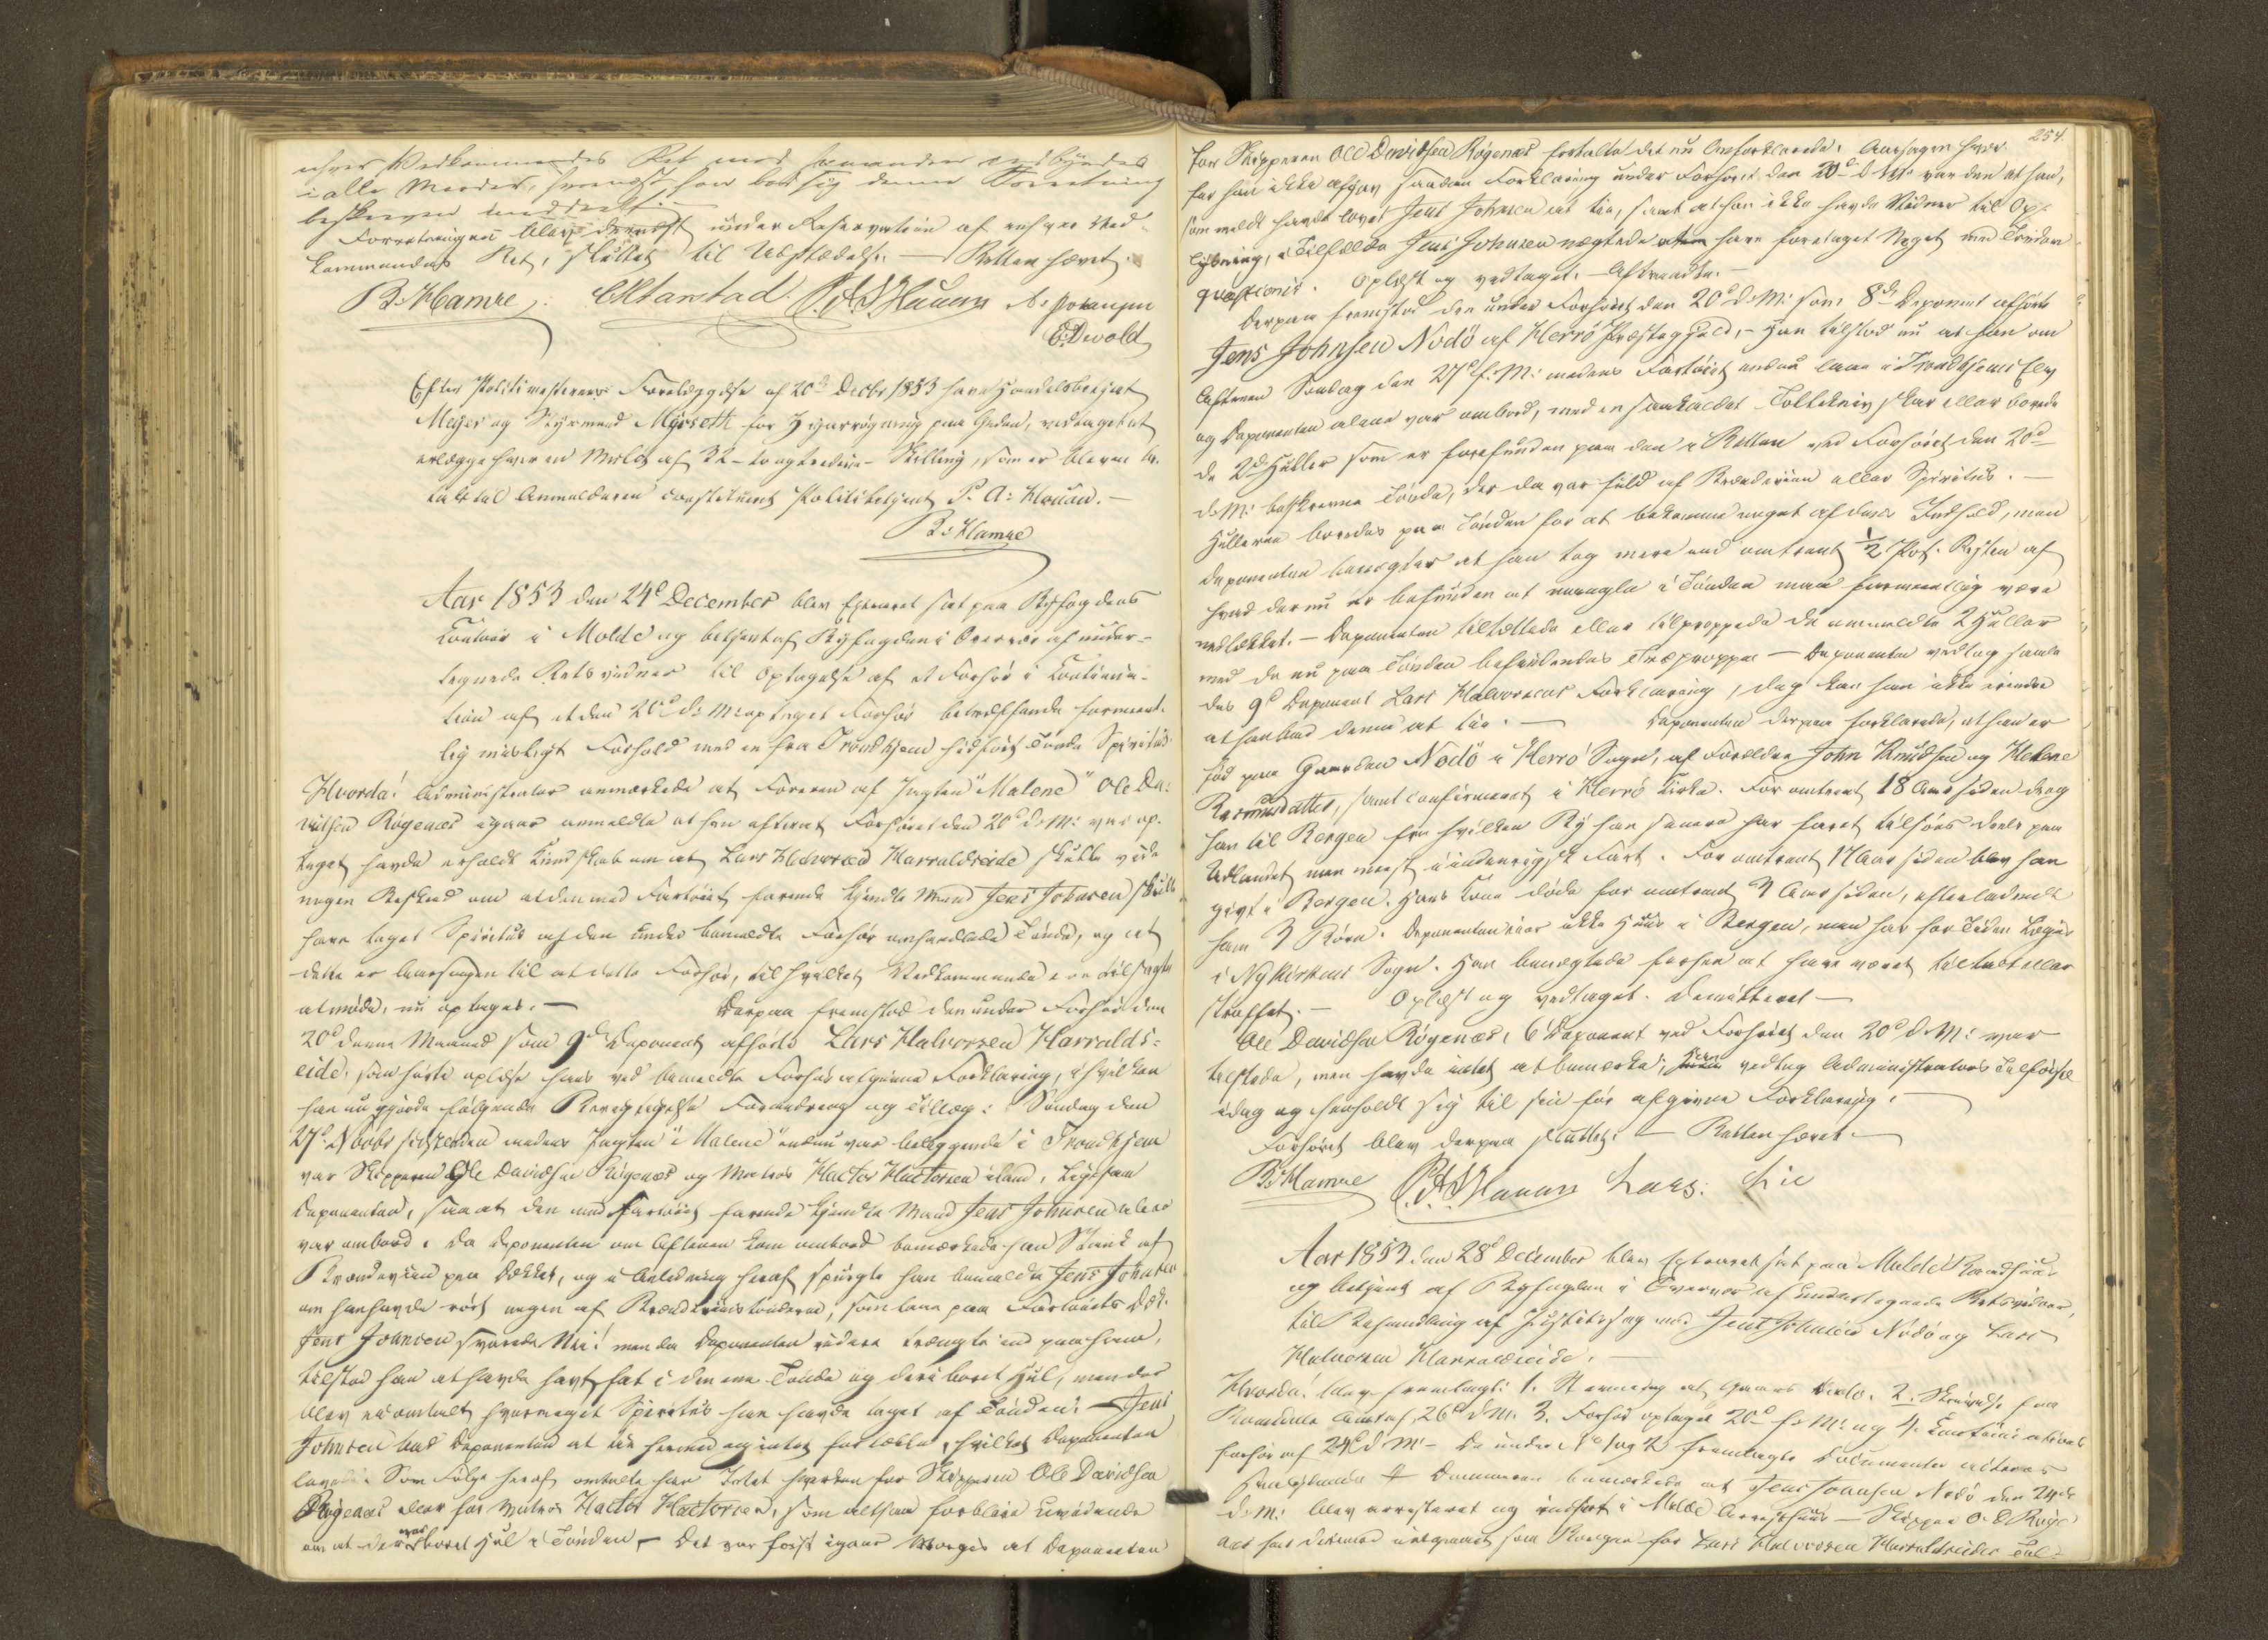 enhver Vedkommendes Ret mod hverandre forbeholdes
i alle Maader, hvornæst han bad sig denne Forretning
beskreven meddeelt.
Forretningen blev dernæst under Reservation af enhver Ved-
kommendes Ret, sluttet til Udstædelse. — Retten hævet.
B: Hamre. P. A. Houan
E: Dwold
Efter Politimesterens Forelæggelse af 20de Decbr 1853 have Handelsbetjent
Meyer og Styrmand Myrseth for Cigarrøgning paa Gaden, vedtaget at
erlægge hver en Mulct af 32 - to og tredive - Skilling, som er bleven be-
talt til Anmelderen constitueret Politibetjent P. A: Houan. —
B: Hamre
Aar 1853 den 24de December blev Extraret sat paa Byfogdens
Contoir i Molde og betjent af Byfogden i Overvær af under-
tegnede Retsvidner til Optagelse af et Forhør i Continua-
tion af et den 20de d: M: optaget Forhør betræffende forment-
lig misligt Forhold med en fra Trondhjem hidført Tønde Spiritus
Hvorda! Administrator anmærkede at Føreren af Jagten "Malene" Ole Da-
vidsen Røgenæs igaar anmeldte at han efterat Forhøret den 20de d: M: var op-
taget havde erholdt Kundskab om at Lars Halvorsen Harraldseide skulle vide
nogen Beskeed om at den med Fartøiet farende kjendte Mand Jens Johnsen skulle
have taget Spiritus af den under bemeldte Forhør omhandlede Tønde, og at
dette er Aarsagen til at dette Forhør, til hvilket Vedkommende ere tilsagte
at møde, nu optages. — Derpaa fremstod den under Forhør den
20de denne Maaned som 9de Deponent afhørte Lars Halvorsen Harralds-
eide, som hørte oplæse hans ved bemeldte Forhør afgivne Forklaring, i hvilken
han nu gjorde følgende Berigtigelse Forandring og Tillæg: Søndag den
27de Novbr sidstleden medens Jagten "Malene" endnu var beliggende i Trondhjem
var Skipperen Ole Davidsen Røgenæs og Matros Hactor Hactorsen iland, ligesom
Deponenten, saaat den med Fartøiet farende kjendte Mand Jens Johnsen alene
var ombord. Da Deponenten om Aftenen kom ombord bemærkede han Stank af
Brændeviin paa Dækket, og i Anledning heraf spurgte han bemeldte Jens Johnsen
om han havde rørt nogen af Brændeviinstønderne, som laae paa Fartøiets Dæk.
Jens Johnsen svarede Nei! men da Deponenten videre trængte ind paa ham,
tilstod han at have havt fat i den ene Tønde og deri boret Hul, men der
blev ei omtalt hvormeget Spiritus han havde taget af Tønden. — Jens
Johnsen bad Deponenten at tie hermed og intet fortælle, hvilket Deponenten
lovede. Som Følge heraf omtalte han Intet hverken for Skipperen Ole Davidsen
Røgenæs eller for Matros Hactor Hactorsen, som altsaa forbleve uvidende
om at der var boret Hul i Tønden. — Det var først igaar Morges at Deponenten
254.
for Skipperen Ole Davidsen Røgenæs fortalte det nu Omforklarede. Aarsagen hvor-
for han ikke afgav saadan Forklaring under Forhøret den 20de d: M: var den at han,
som meldt havde lovet Jens Johnsen at tie, samt at han ikke havde Vidner til Op-
lysning, i Tilfælde Jens Johnsen nægtede at have foretaget Noget med Tønden
quæstionis. Oplæst og vedtaget. Aftraadte. —
Derpaa fremstod den under Forhøret den 20de d: M: som 8de Deponent afhørte
Jens Johnsen Nødø af Herrø Præstegjeld, — Han tilstod nu at han om
Aftenen Søndag den 27de f: M: medens Fartøiet endnu laae i Trondhjems Elv
og Deponenten alene var ombord, med en saakaldet Tollekniv skar eller borede
de 2de Huller som er forefunden paa den i Retten ved Forhøret den 20de
d: M: beskrevne Tønde, der da var fuld af Brændeviin eller Spiritus. —
Hullerne boredes paa Tønden for at bekomme noget af dens Indhold, men
Deponenten benægter at han tog mere end omtrent 1/2 Pot. Resten af
hvad der nu er befunden at mangle i Tønden maa formeentlig være
udlækket. — Deponenten tiltættede eller tilproppede de anmeldte 2 Huller
med de nu paa Tønden befindendes Træpropper — Deponenten vedtog samle-
des 9de Deponent Lars Halvorsens Forklaring, dog kan han ikke erindre
at han bad denne at tie. — Deponenten derpaa forklarede, at han er
fød paa Gaarden Nødø i Herrø Sogn, af Forældre John Knudsen og Helene
Rasmusdatter, samt confirmeret i Herrø Kirke. For omtrent 18 Aar siden drog
han til Bergen fra hvilken By han senere har faret tilsøes deels paa
Udlandet men meest i indenrigsk Fart. For omtrent 17 Aar siden blev han
givt i Bergen. Hans Kone døde for omtrent 7 Aar siden, efterladende
ham 3 Børn. Deponenten eier ikke Huus i Bergen, men har for Tiden Logis
i Nykirkens Sogn. Han benægtede forhen at have været tiltalt eller
straffet. — Oplæst og vedtaget. Demitteret —
Ole Davidsen Røgenæs, 6 Deponent ved Forhøret den 20de d: M: var
tilstede, men havde intet at bemærke; han vedtog Administrators Tilførsel
idag og henholdt sig til sin før afgivne Forklaring. —
Forhøret blev derpaa sluttet. — Retten hævet. —
B: Hamre P. A. Houan Lars: Lie
Aar 1853 den 28de December blev Extraret sat paa Molde Raadhuus
og betjent af Byfogden i Overvær af undertegnede Retsvidner,
til Behandling af Justitssag mod Jens Johnsen Nødø og Lars
Halvorsen Harraldseide. —
Hvorda! blev fremlagt: 1. Stævning af Gaars Dato. 2. Skrivelse fra
Romsdals Amt af 26de d: M: 3. Forhør optaget 20de d: M: og 4. Continuations
forhør af 24de d: M: — De under No 1 og 2 fremlagte Documenter
Dommeren bemærkede at Jens Johnsen Nødø den 24de
d: M: blev arresteret og indsat i Molde Arresthuus — Skipper O: D: Røge-
næs har derimod som Borgen for Lars Halvorsen Harraldseides Til-